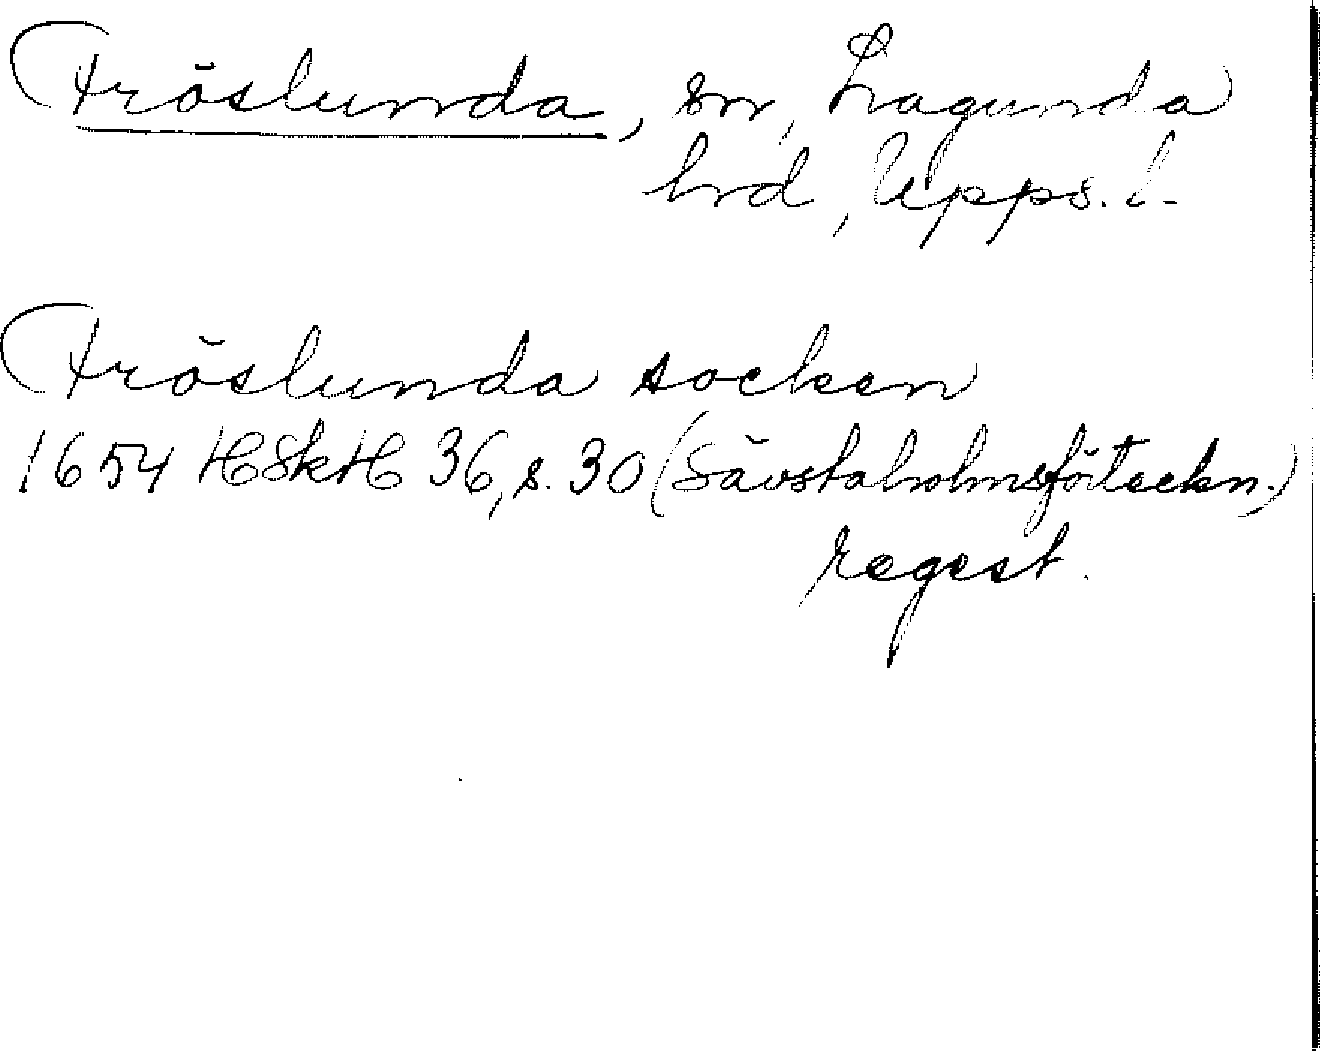 Fröslunda, sn, Lagunda
hrd, Upps. l.
Fröslunda socken
1654 HSkH 36, s. 30 (Sävstaholmsförteckn.)
regest.